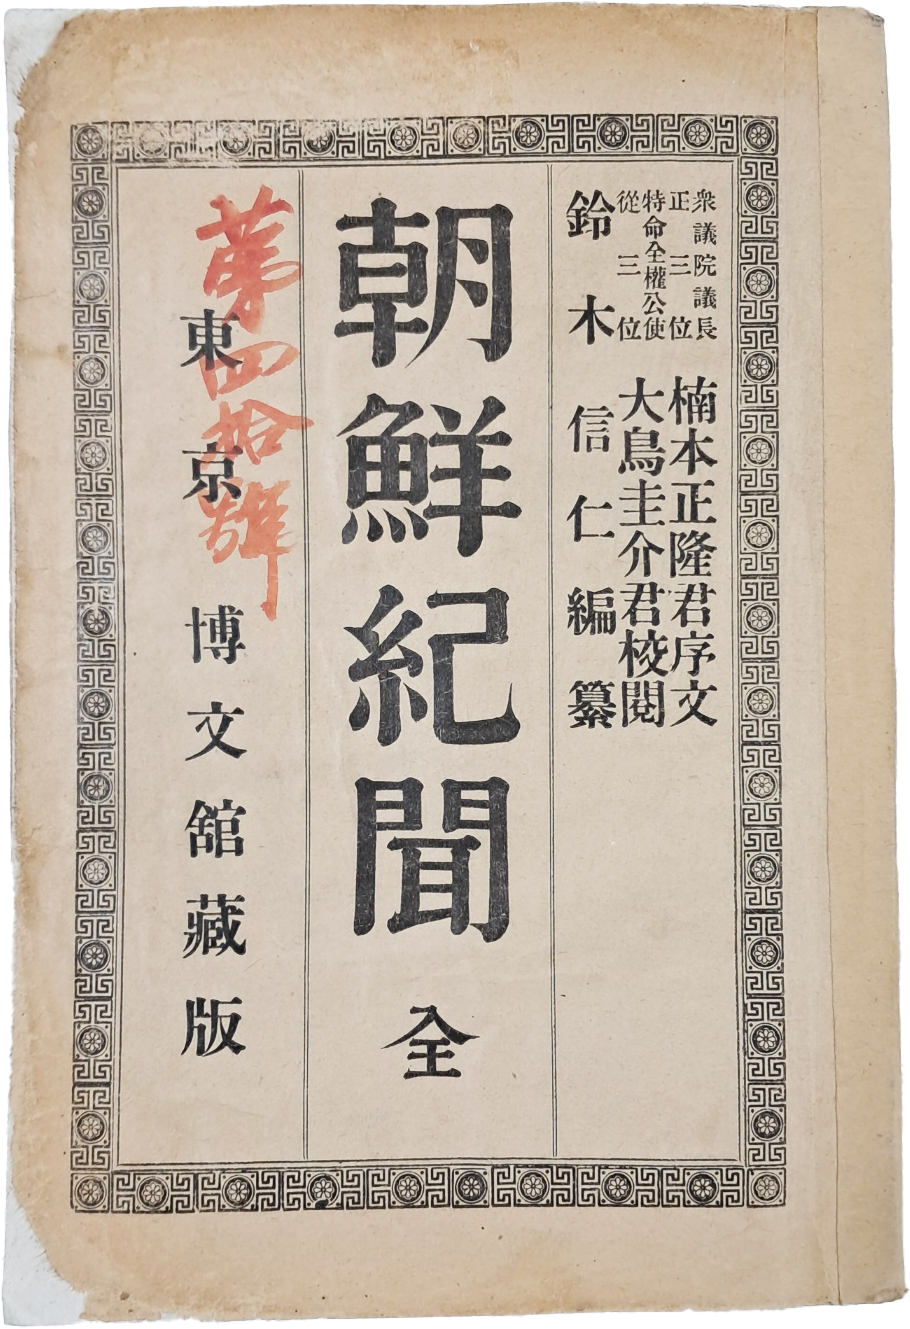 衆議院議長
正三位
楠本正隆君序文
特命全權公使
從三位
大鳥圭介君校閱
鈴木信仁編纂
朝鮮紀聞 全
東京 博文館藏版
第四拾號